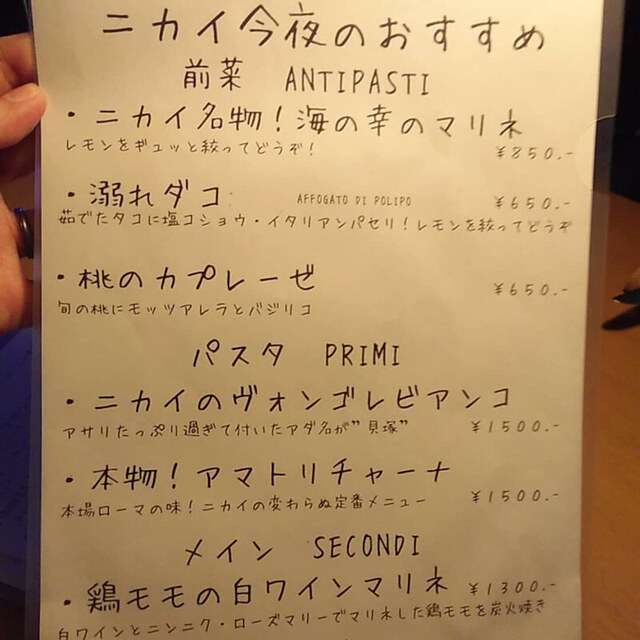 ニカイ今夜のおすすめ
前菜 ANTIPASTI
・ニカイ名物!海の幸のマリネ
レモンをギュッと絞ってどうぞ! ¥850.-
・溺れダコ AFFOGATO DI POLIPO ¥650.-
茹でたタコに塩コショウ・イタリアンパセリ!レモンを絞ってどうぞ
・桃のカプレーゼ ¥650.-
旬の桃にモッツアレラとバジリコ
パスタ PRIMI
・ニカイのヴォンゴレビアンコ
アサリたっぷり過ぎて付いたアダ名が"貝塚" ¥1500.-
・本物!アマトリチャーナ
本場ローマの味!ニカイの変わらぬ定番メニュー ¥1500.-
メイン SECONDI
・鶏モモの白ワインマリネ ¥1300.-
白ワインとニンニク・ローズマリーでマリネした鶏モモを炭火焼き